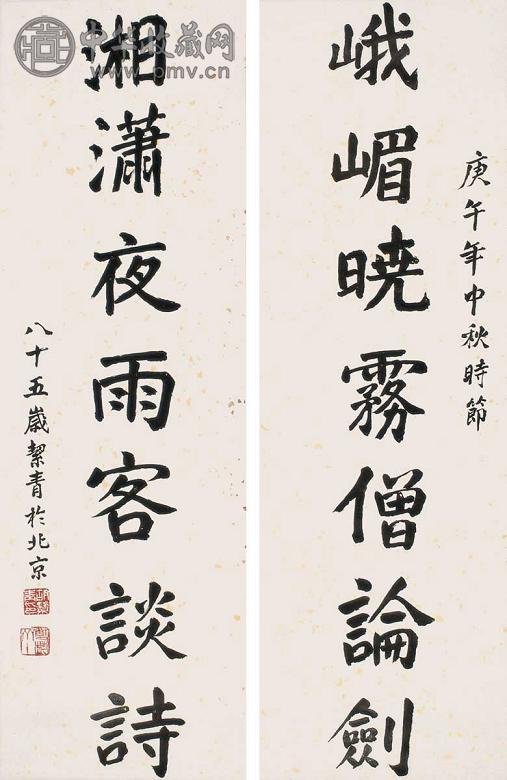 庚午年中秋時節
峨嵋曉霧僧論劍
湘瀟夜雨客談詩
八十五歲絜青於北京
中华收藏网
www.pmv.cn